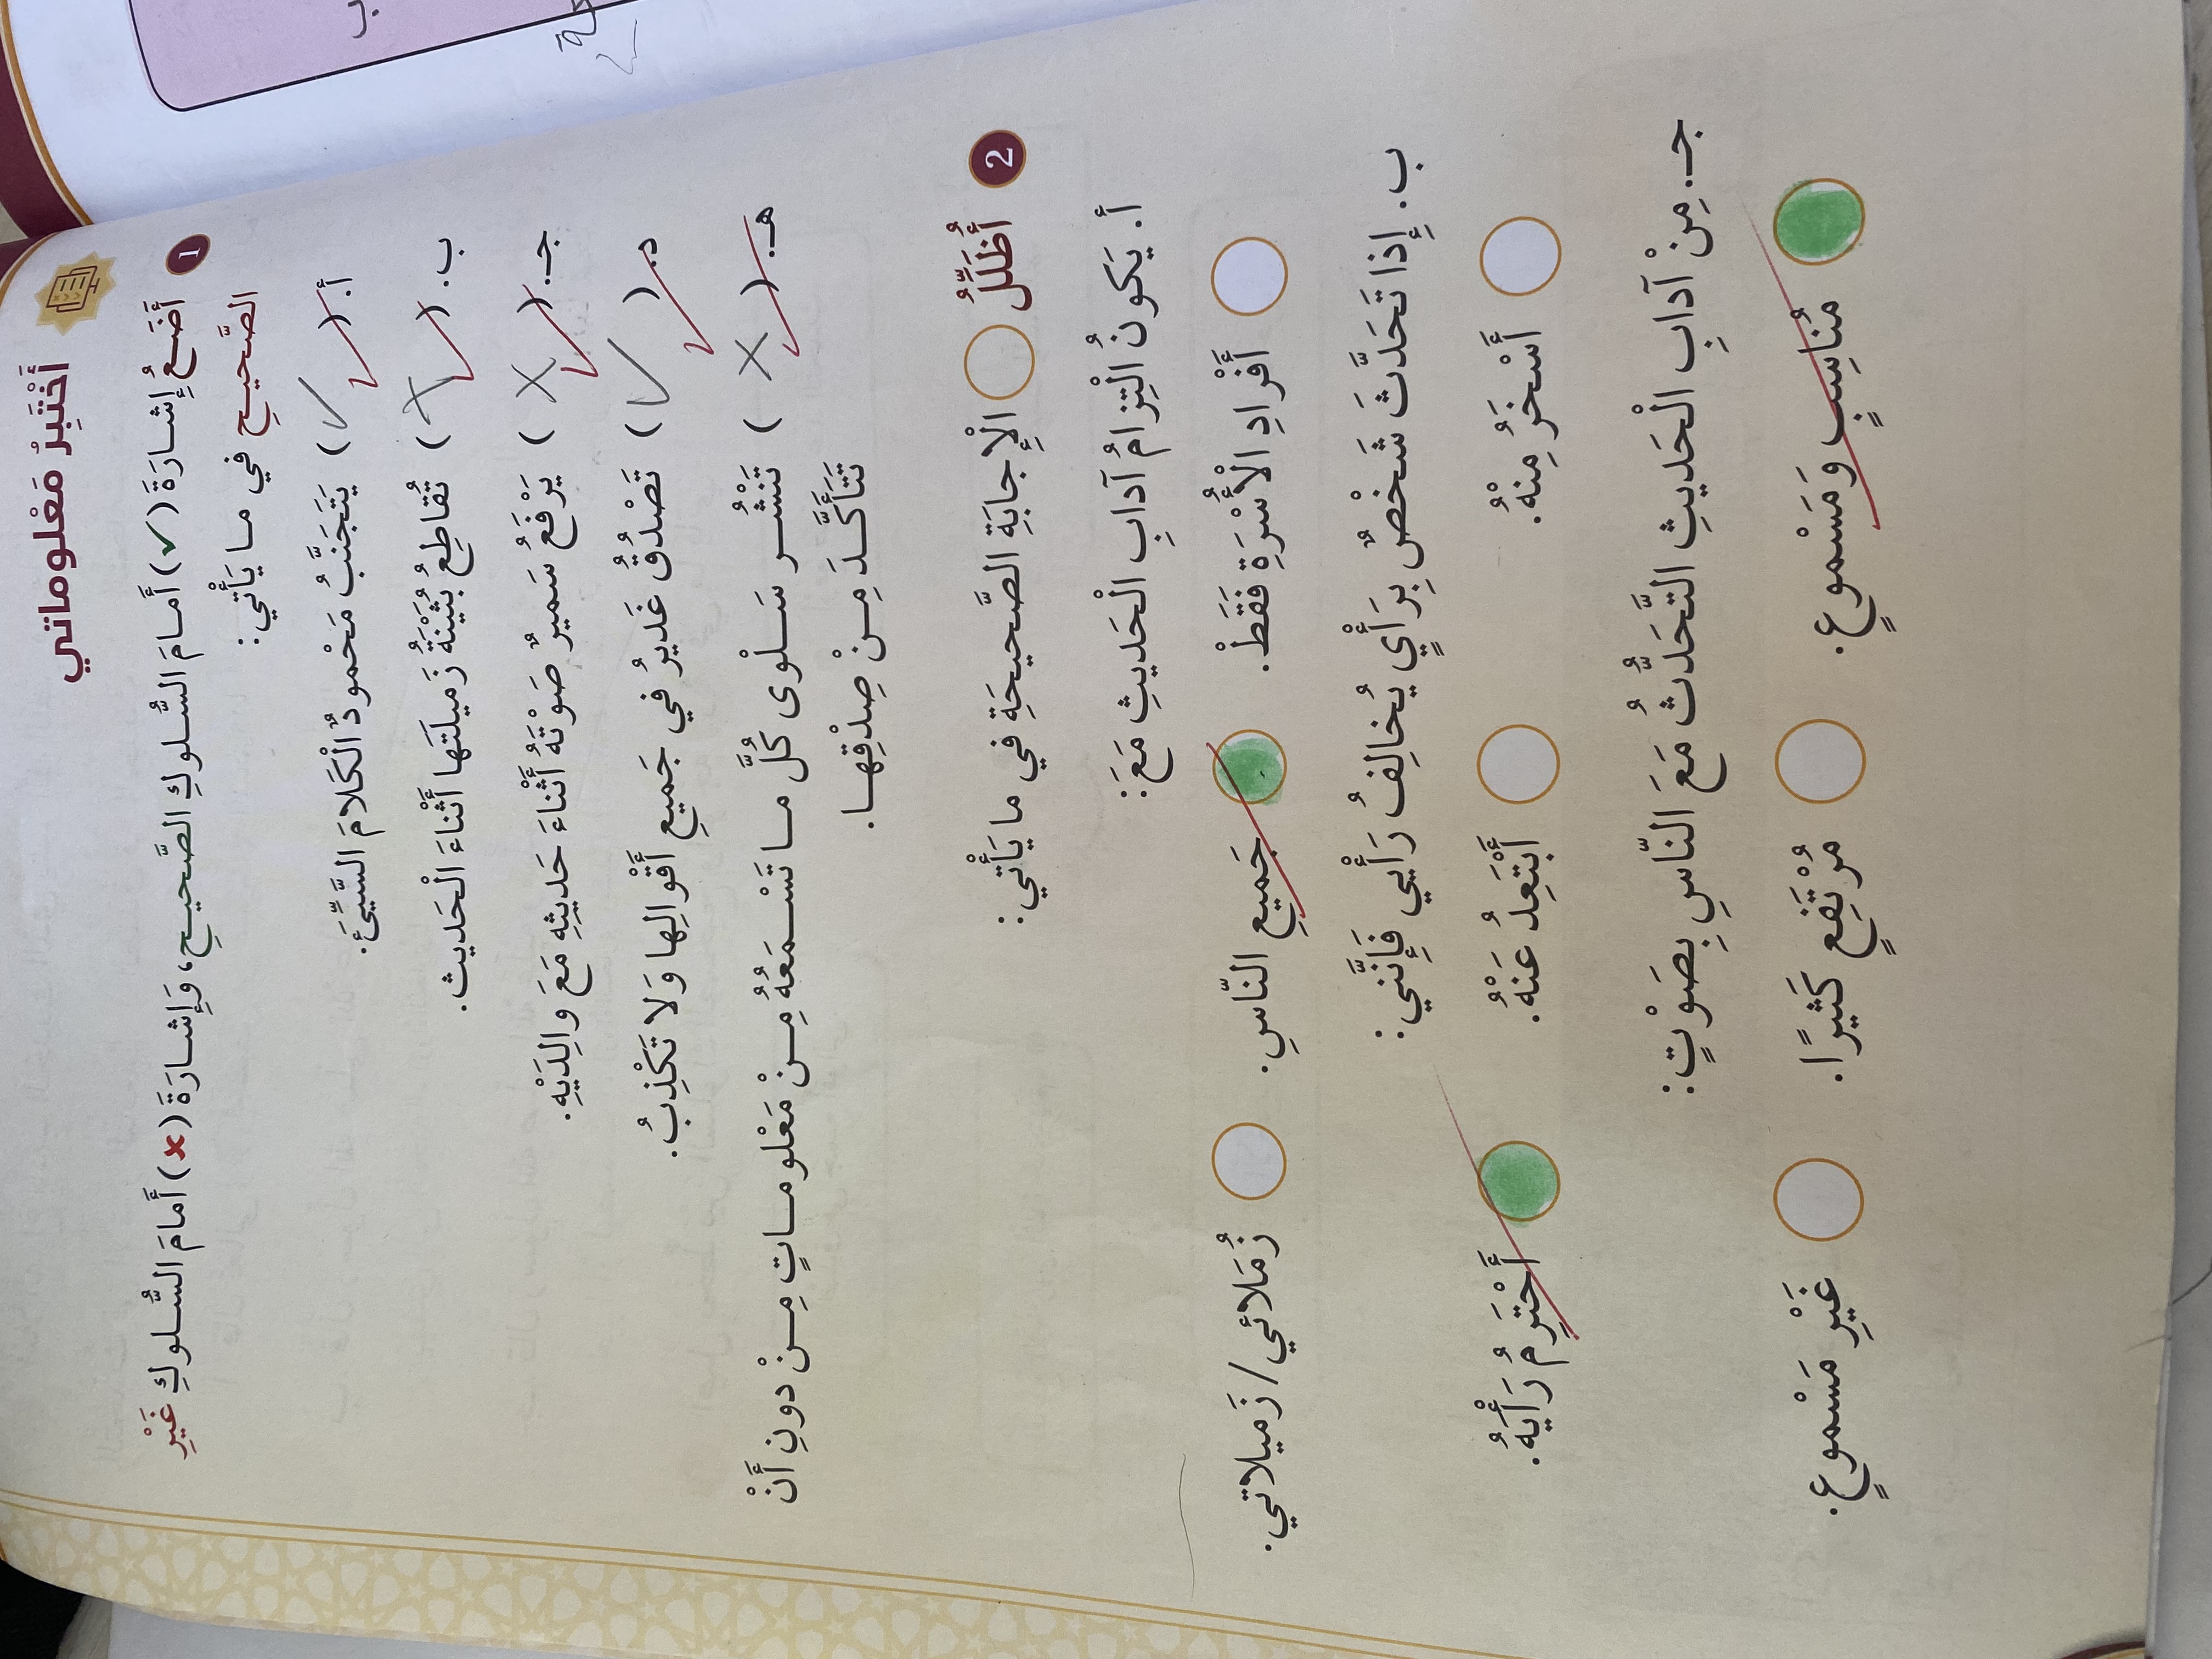 أَخْتَبِرُ مَعْلوماتي
1 أَضَعُ إِشارَةَ (✓) أَمامَ السُّلوكِ الصَّحيحِ، وَإِشارَةَ (✗) أَمامَ السُّلوكِ غَيْرِ
الصَّحيحِ في ما يَأْتي:
أ. (✓) يَتَجَنَّبُ مَحْمودٌ الْكَلامَ السَّيِّئَ.
ب. (✗) تُقاطِعُ بُثَيْنَةُ زَميلَتَها أَثْناءَ الْحَديث.
جـ. (✗) يَرْفَعُ سَميرٌ صَوْتَهُ أَثْناءَ حَديثِهِ مَعَ والِدَيْهِ.
د. (✓) تَصْدُقُ غَديرُ في جَميعِ أَقْوالِها وَلا تَكْذِبُ.
هـ. (✗) تَنْشُر سَلْوى كُلَّ ما تَسْمَعُهُ مِنْ مَعْلوماتٍ مِنْ دونِ أَنْ
تَتَأَكَّدَ مِنْ صِدْقِها.
2 أُظَلِّلُ الْإِجابَةِ الصَّحيحَةِ في ما يَأْتي:
أ. يَكونُ الْتِزامُ آدابِ الْحَديثِ مَعَ:
أَفْرادِ الْأُسْرَةِ فَقَطْ. جَميعِ النّاسِ. زُمَلائي/ زَميلاتي.
ب. إِذا تَحَدَّثَ شَخْصٌ بِرَأْيٍ يُخالِفُ رَأْيي فَإِنَّني:
أَسْخَرُ مِنْهُ. أَبْتَعِدُ عَنْهُ. أَحْتَرِمُ رَأْيَهُ.
جـ. مِنْ آدابِ الْحَديثِ التَّحَدُّثُ مَعَ النّاسِ بِصَوْتٍ:
مُناسِبٍ وَمَسْموعٍ. مُرْتَفِعٍ كَثيرًا. غَيْرِ مَسْموعٍ.